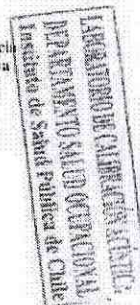 LABORATORIO DE CALIBRACION ACUSTICA
DEPARTAMENTO SALUD OCUPACIONAL
Instituto de Salud Pública de Chile